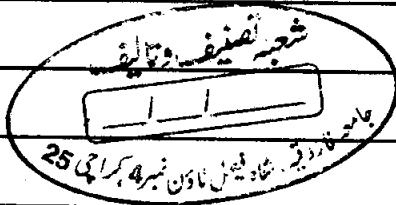 شعبہ تصنیف و تالیف
/ /
جامعہ فاروقیہ، شاہ فیصل ٹاؤن نمبر 4 کراچی 25